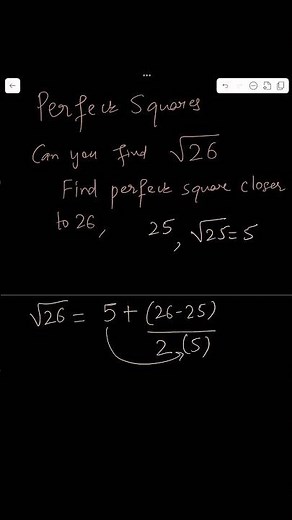 Perfect Squares
Can you find √26
Find perfect square closer
to 26, 25, √25=5
√26 = 5 + (26-25)
2 (5)